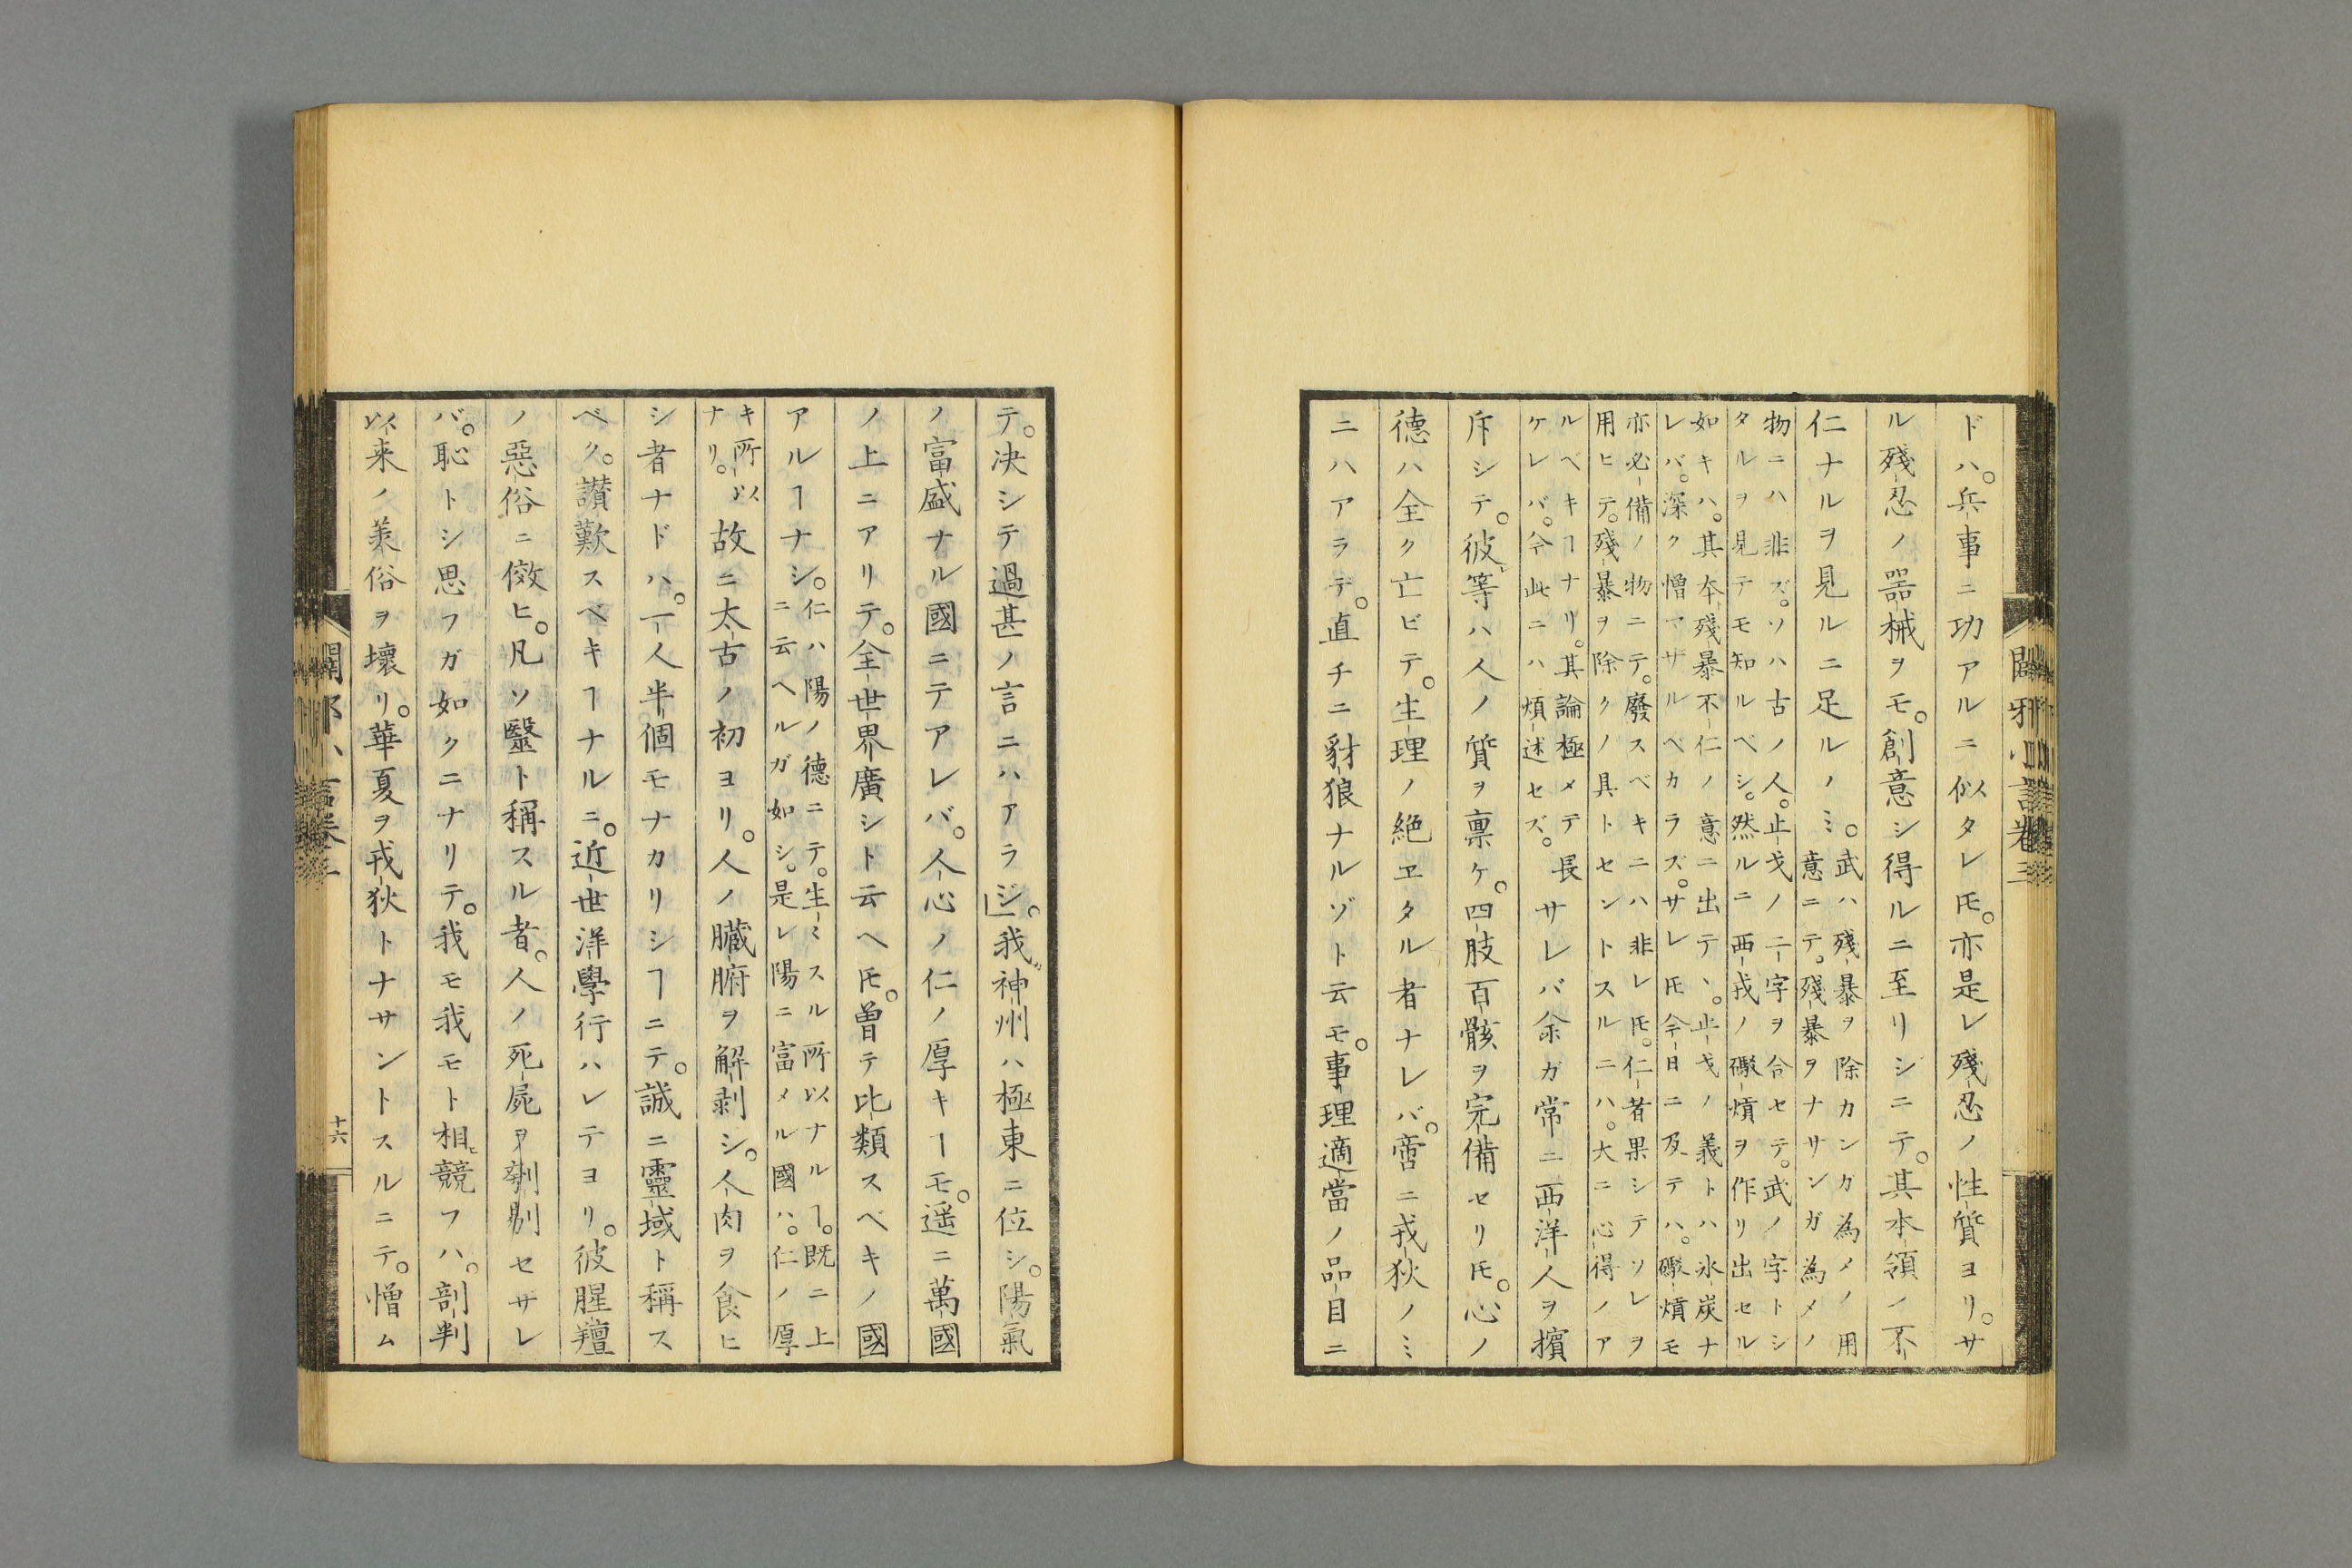 ドハ。兵事ニ功アルニ似タレ𪜈。亦是レ殘忍ノ性質ヨリ。サ
ル殘忍ノ噐械ヲモ。創意シ得ルニ至リシニテ。其本領ノ不
仁ナルヲ見ルニ足ルノミ。
武ハ殘暴ヲ除カンガ為メノ用
意ニテ。殘暴ヲナサンガ為メノ
物ニハ非ズ。ソハ古ノ人。止戈ノ二字ヲ合セテ。武ノ字トシ
タルヲ見テモ知ルベシ。然ルニ西戎ノ礮熕ヲ作リ出セル
如キハ。其本殘暴不仁ノ意ニ出テヽ。止戈ノ義トハ氷炭ナ
レバ。深ク憎マザルベカラズ。サレ𪜈今日ニ及テハ。礮熕モ
亦必備ノ物ニテ。廢スベキニハ非レ𪜈。仁者果シテソレヲ
用ヒテ。殘暴ヲ除クノ具トセントスルニハ。大ニ心得ノア
ルベキヿナリ。其論極メテ長
ケレバ。今此ニハ煩述セズ。
サレバ余ガ常ニ西洋人ヲ擯
斥シテ。彼等ハ人ノ質ヲ稟ケ。四肢百骸ヲ完備セリ𪜈。心ノ
德ハ全ク亡ビテ。生理ノ絶ヱタル者ナレバ。啻ニ戎狄ノミ
ニハアラデ。直チニ豺狼ナルゾト云モ。事理適當ノ品目ニ
闢邪小言卷三
テ。决シテ過甚ノ言ニハアラジ。」我神州ハ極東ニ位シ。陽氣
ノ富盛ナル國ニテアレバ。人心ノ仁ノ厚キヿモ。遥ニ萬國
ノ上ニアリテ。全世界廣シト云ヘ𪜈。曽テ比類スベキノ國
アルヿナシ。
仁ハ陽ノ德ニテ。生〻スル所以ナルヿ。既ニ上
ニ云ヘルガ如シ。是レ陽ニ富メル國ハ。仁ノ厚
キ所以
ナリ。
故ニ太古ノ初ヨリ。人ノ臓腑ヲ解剥シ。人肉ヲ食ヒ
シ者ナドハ。一人半個モナカリシヿニテ。誠ニ靈域ト稱ス
ベク。讃歎スベキヿナルニ。近世洋學行ハレテヨリ。彼腥羶
ノ惡俗ニ傚ヒ。凡ソ毉ト稱スル者。人ノ死屍ヲ刳剔セザレ
バ。恥トシ思フガ如クニナリテ。我モ我モト相競フハ。剖判
以来ノ美俗ヲ壞リ。華夏ヲ戎狄トナサントスルニテ。憎ム
闢邪小言卷三
十六